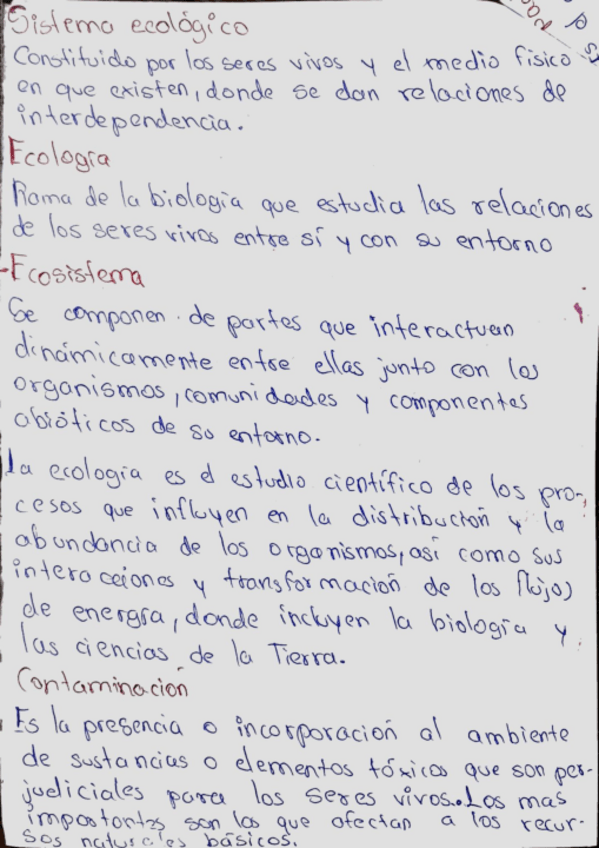 Sistema ecológico
Constituido por los seres vivos y el medio físico
en que existen, donde se dan relaciones de
interdependencia.
Ecología
Rama de la biología que estudia las relaciones
de los seres vivos entre sí y con su entorno
-Ecosistema
Se componen de partes que interactuan
dinámicamente entre ellas junto con los
organismos, comunidades y componentes
abióticos de su entorno.
La ecología es el estudio científico de los pro-
cesos que influyen en la distribución y la
abundancia de los organismos, así como sus
interacciones y transformación de los flujos
de energía, donde incluyen la biología y
las ciencias de la Tierra.
Contaminacion
Es la presencia o incorporación al ambiente
de sustancias o elementos tóxicos que son per-
judiciales para los seres vivos. Los mas
importantes son los que afectan a los recur-
sos naturales básicos.